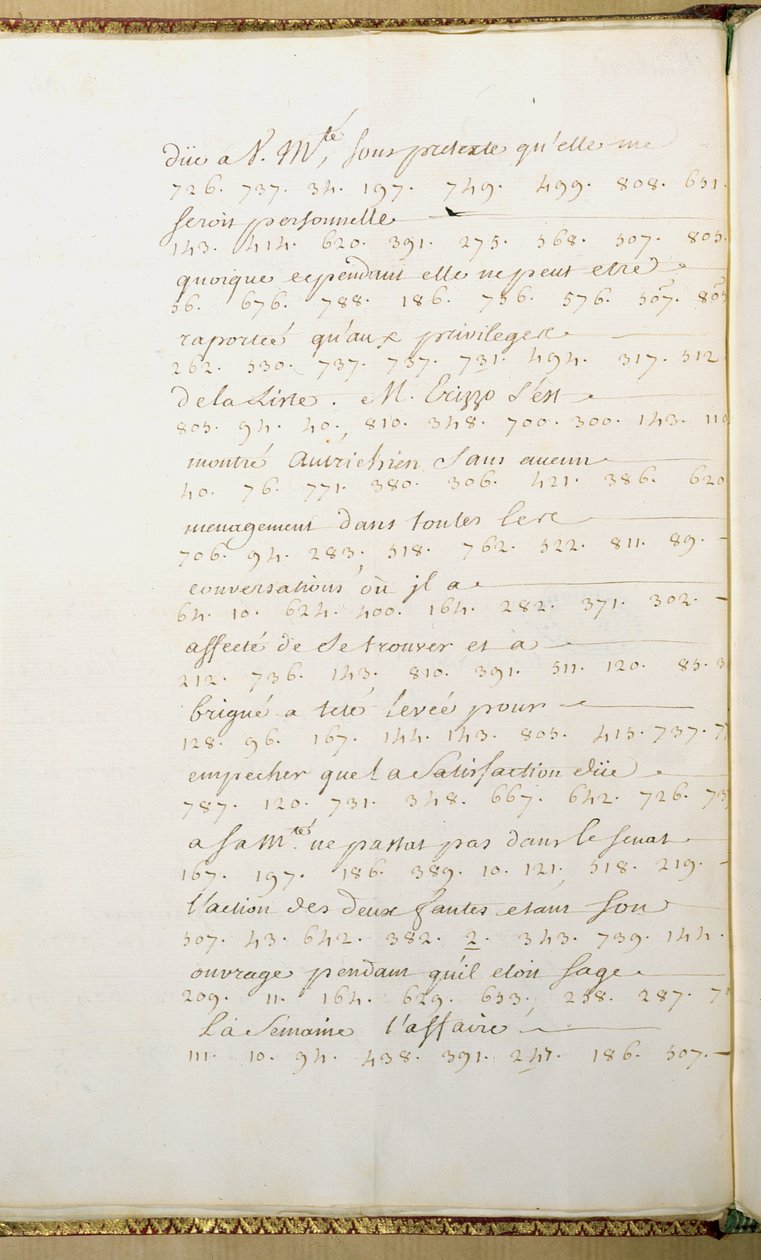 düe a V. M.té, sous pretexte qu'elle me
726. 737. 34. 197. 749. 499. 808. 651.
seroit personnelle
143. 414. 620. 391. 275. 568. 507. 805.
quoique cependant elle ne peut etre
56. 676. 788. 186. 756. 576. 507. 805
raportée qu'aux privileges
262. 530. 737. 757. 731. 494. 317. 512
de la Liste. M. Erizzo s'est
805. 94. 40. 810. 348. 700. 300. 143. 110
montré Autrichien sans aucun
40. 76. 771. 380. 306. 421. 386. 620
menagement dans toutes les
706. 94. 283. 518. 762. 522. 811. 89.
conversations où il a
64. 10. 624. 400. 164. 282. 371. 302.
affecté de se trouver et a
212. 736. 143. 810. 391. 511. 120. 85.
brigué a teté levée pour
128. 96. 167. 144. 143. 805. 415. 737.
empecher que la Satisfaction düe
787. 120. 731. 348. 667. 642. 726.
a sa M.té ne passat pas dans le senat
167. 197. 186. 389. 10. 121. 518. 219.
l'action des deux fautes etant son
507. 43. 642. 382. 2. 343. 739. 144.
ouvrage pendant qu'il etoit sage
209. 11. 164. 629. 653. 258. 287.
La Semaine l'affaire
111. 10. 94. 438. 391. 247. 186. 507.